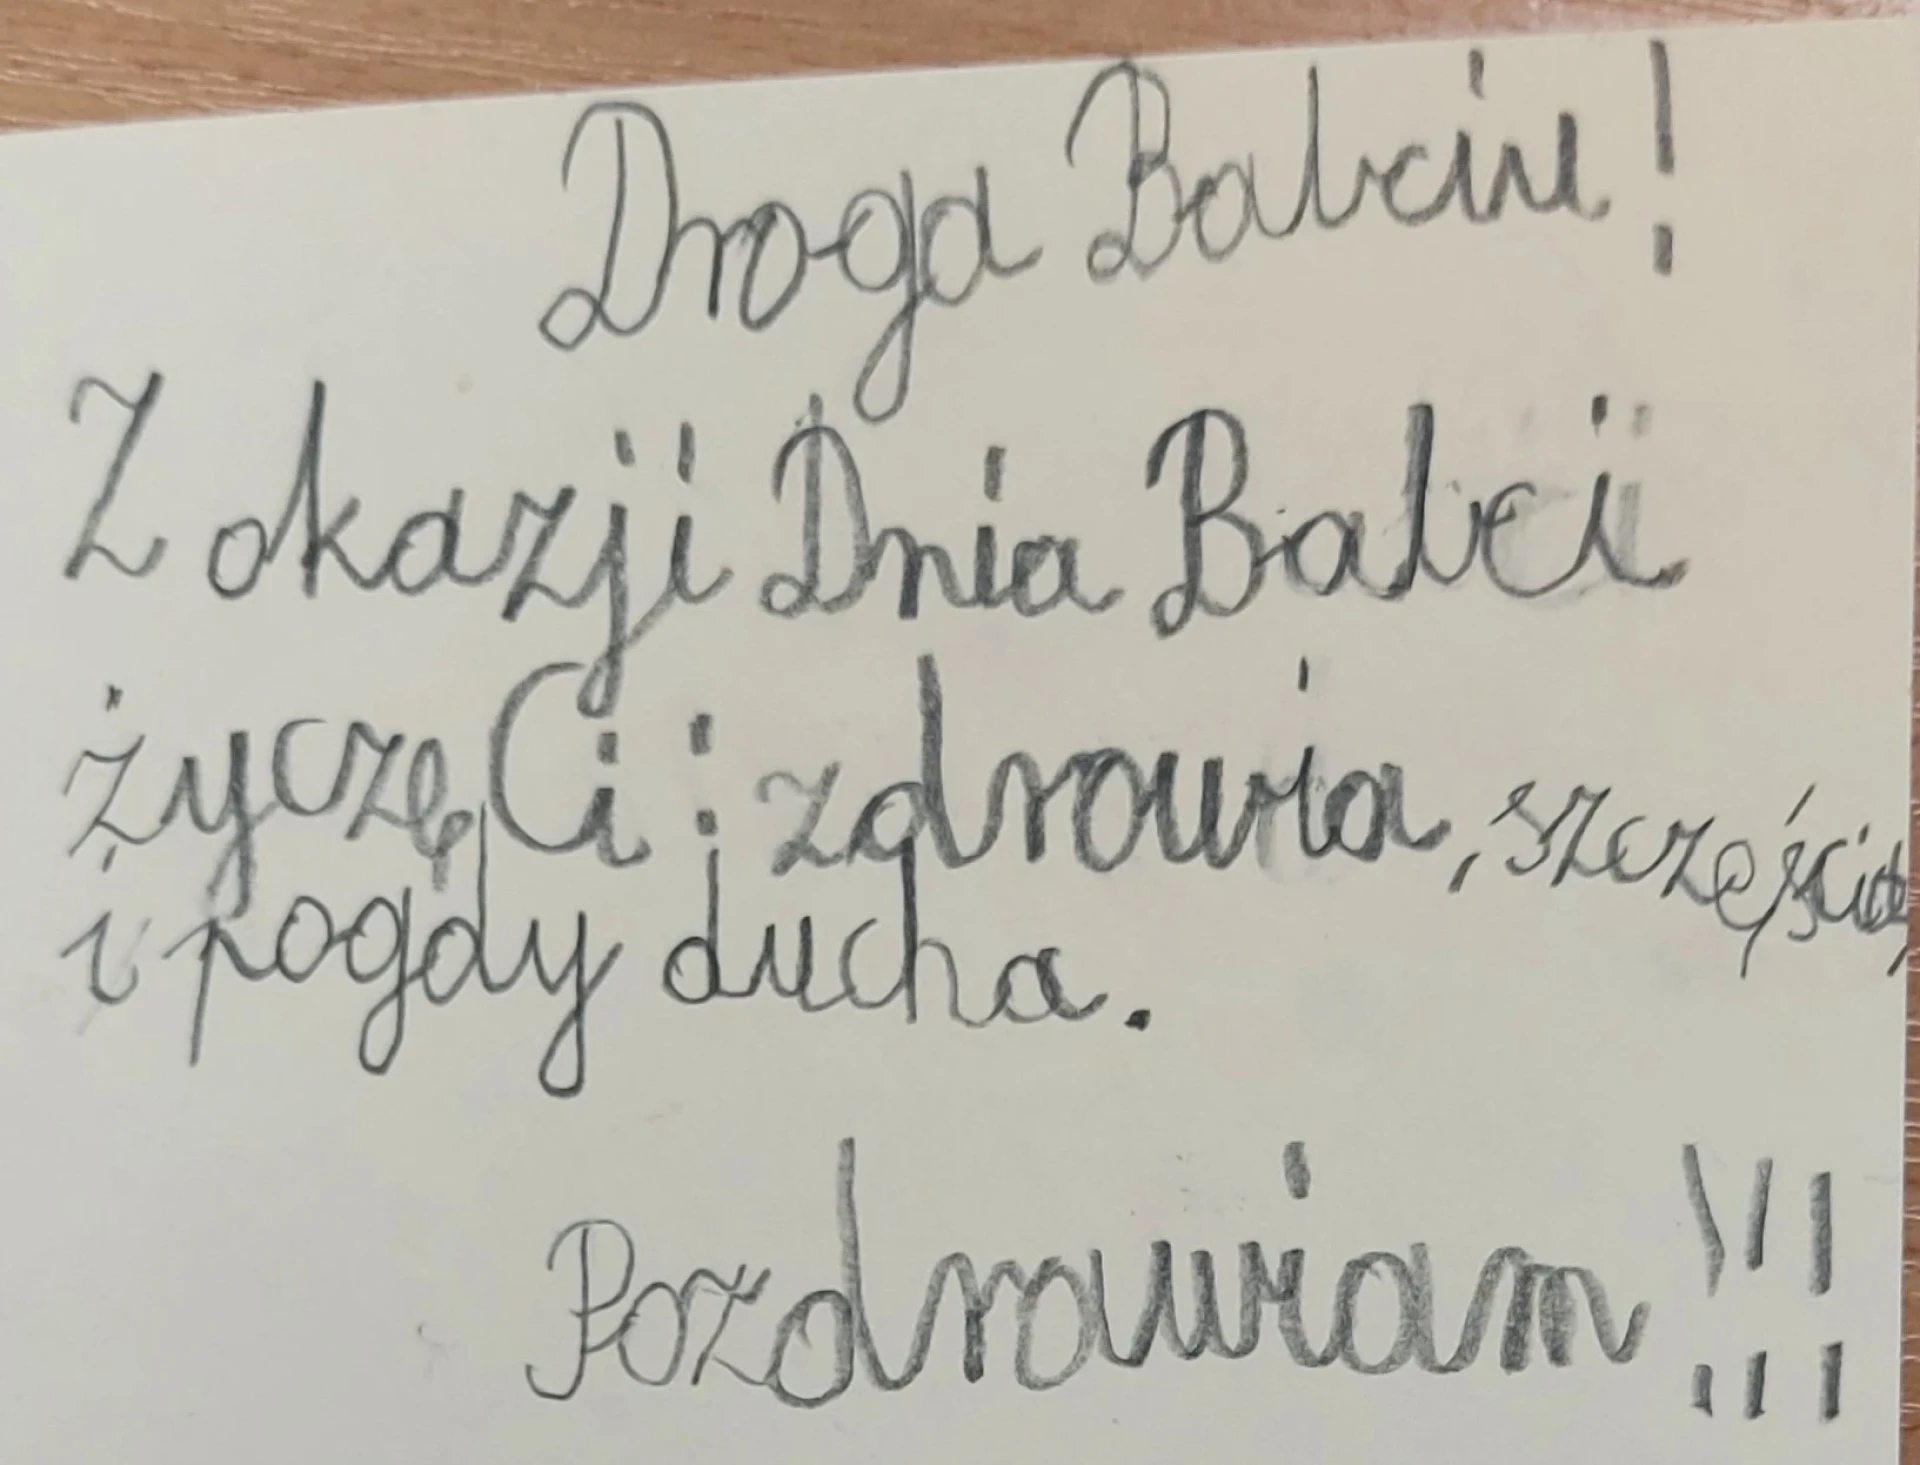 Droga Babciu!
Z okazji Dnia Babci
życzę Ci: zdrowia, szczęścia,
i pogdy ducha.
Pozdrawiam!!!